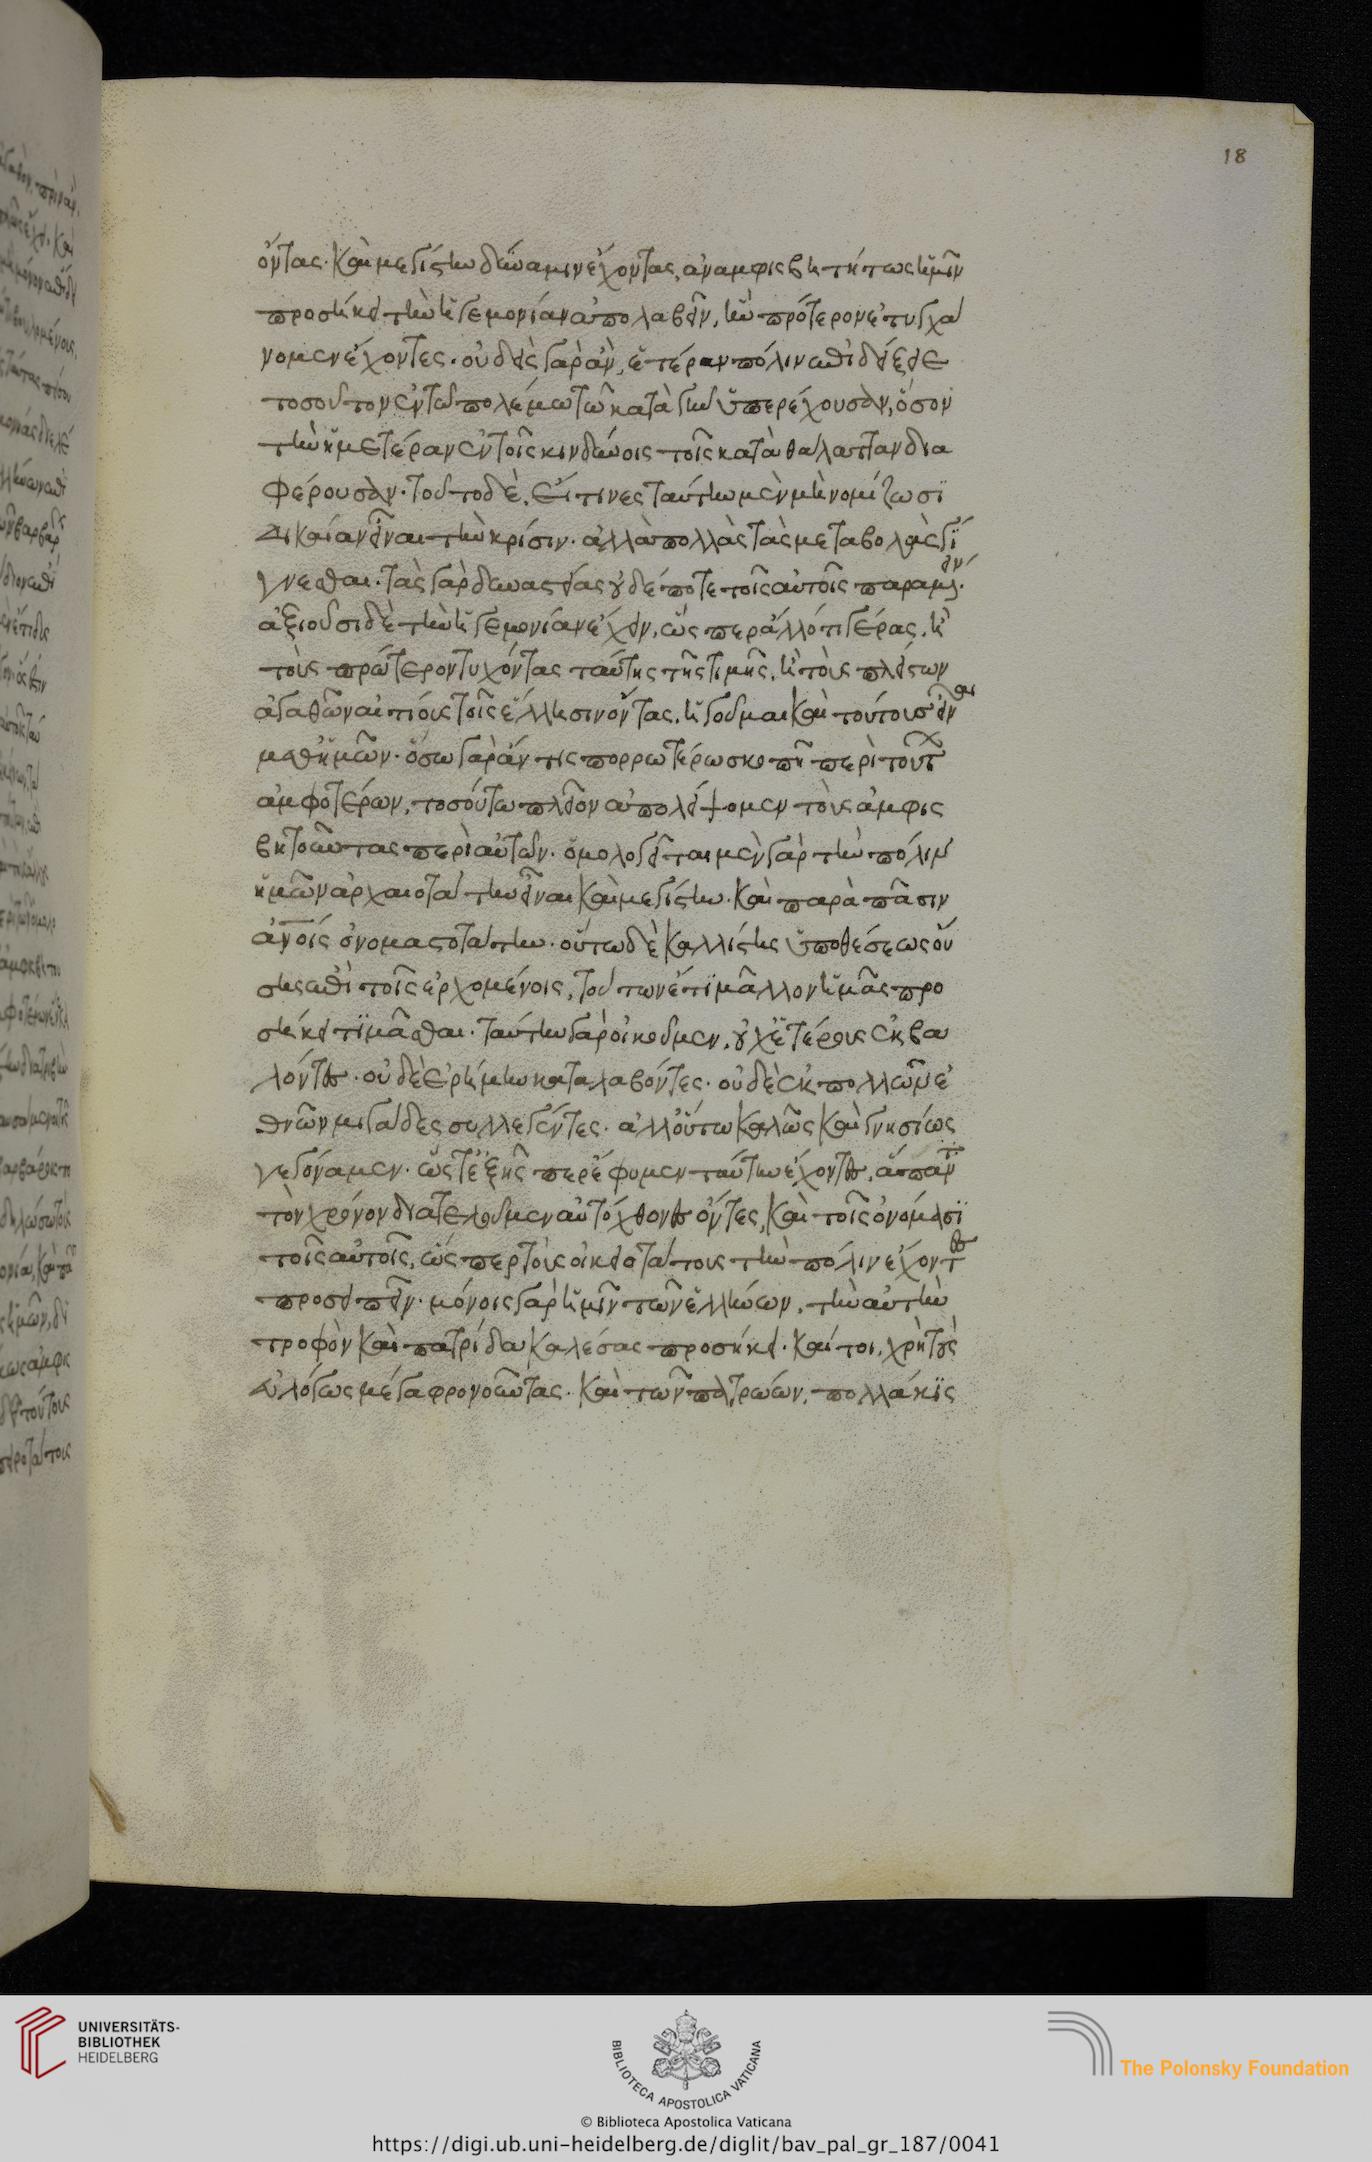 18
ὄντας· καὶ μεγίστην δύναμιν ἔχοντας, ἀναμφισβητήτως ἡμῖν
προσήκει τὴν ἡγεμονίαν ἀπολαβεῖν, ἣν πρότερον ἐτυγχά
νομεν ἔχοντες· οὐδεὶς γὰρ ἂν, ἑτέραν πόλιν ἐπιδείξειε
τοσοῦτον ἐν τῷ πολέμῳ τῷ κατὰ γῆν ὑπερέχουσαν, ὅσον
τὴν ἡμετέραν ἐν τοῖς κινδύνοις τοῖς κατὰ θάλατταν δια
φέρουσαν· τοῦτο δὲ, εἴ τινες ταύτην μὲν μὴ νομίζωσϊ
δικαίαν εἶναι τὴν κρίσιν· ἀλλὰ πολλὰς τὰς μεταβολὰς γί
γνεσθαι· τὰς γὰρ δυναστείας οὐδέποτε τοῖς αὐτοῖς παραμέν·
ἀξιοῦσι δὲ τὴν ἡγεμονίαν ἔχειν, ὥσπερ ἄλλό τι γέρας, ἢ
τοὺς πρώτερον τυχόντας ταύτης τῆς τιμῆς, ἢ τοὺς πλείστων
ἀγαθῶν αἰτίους τοῖς ἕλλησιν ὄντας, ἡγοῦμαι καὶ τούτους εἶναι
μεθ ἡμῶν· ὅσῳ γὰρ ἄν τις πορρωτέρω σκοπῇ περὶ τούτ
ἀμφοτέρων, τοσούτῳ πλεῖον ἀπολείψομεν τοὺς ἀμφισ
βητοῦντας περὶ αὐτῶν· ὁμολογεῖται μὲν γὰρ τὴν πόλιν
ἡμῶν ἀρχαιοτάτην εἶναι καὶ μεγίστην· καὶ παρὰ πᾶσιν
ἀνοις ὀνομαστοτάτην· οὕτω δὲ καλλίστης ὑποθέσεως οὔ
σης ἐπὶ τοῖς ἐρχομένοις, τούτων ἔτι μᾶλλον ἡμᾶς προ
σήκει τϊμᾶσθαι· ταύτην γὰρ οἰκοῦμεν, οὐχ ἑτέρους ἐκβα
λόντες· οὐδὲ ἐρήμην καταλαβόντες· οὐδὲ ἐκ πολλῶν ἐ
θνῶν μιγάδες συλλεγέντες· ἀλλ οὕτω καλῶς καὶ γνησίως
γεγόναμεν· ὥστ ἐξ ἧς περ ἔφυμεν ταύτην ἔχοντες, ἅπαντ
τὸν χρόνον διατελοῦμεν αὐτόχθονες ὄντες, καὶ τοῖς ὀνόμασϊ
τοῖς αὐτοῖς, ὥσπερ τοὺς οἰκειοτάτους τὴν πόλιν ἔχοντες
προσειπεῖν· μόνοις γὰρ ἡμῖν τῶν ἑλλήνων, τὴν αὐτὴν
τροφὸν καὶ πατρίδα καλέσας προσήκει· καίτοι, χρὴ τοὺς
εὐλόγως μέγα φρονοῦντας· καὶ τῶν πατρώων, πολλάκις
UNIVERSITÄTS-
BIBLIOTHEK
HEIDELBERG
BIBLIOTECA APOSTOLICA VATICANA
The Polonsky Foundation
© Biblioteca Apostolica Vaticana
https://digi.ub.uni-heidelberg.de/diglit/bav_pal_gr_187/0041